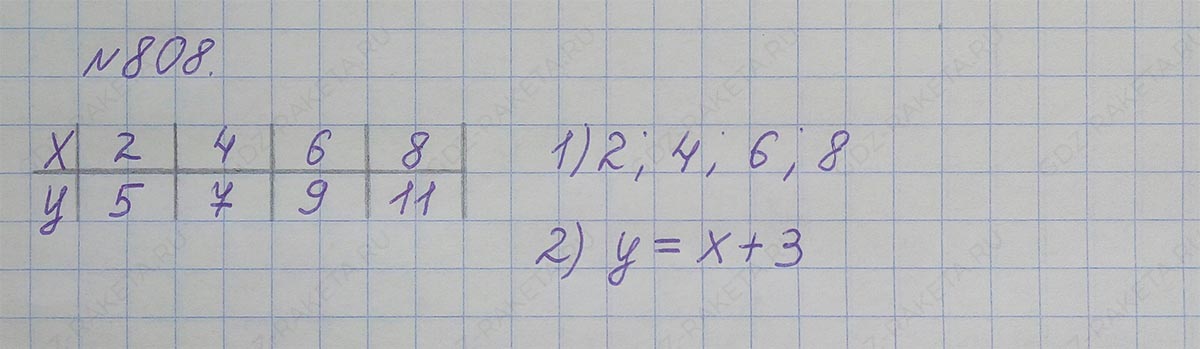 №808.
х 2 4 6 8
у 5 7 9 11
1) 2; 4; 6; 8
2) у = х + 3
GDZ-RAKETA.RU